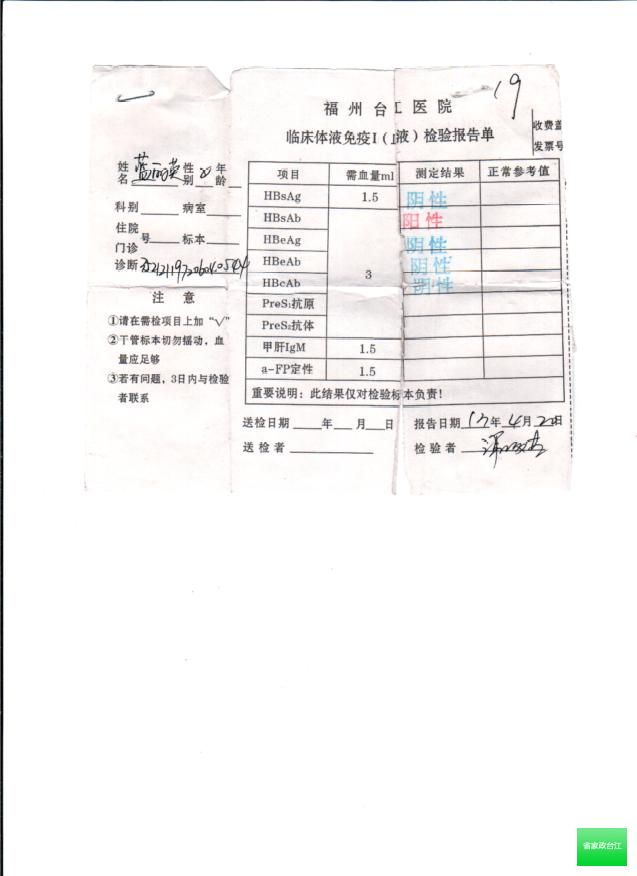 19
福州台江医院
临床体液免疫Ⅰ(液)检验报告单
收费盖
发票号
姓名 性别 女 年龄
科别 病室
住院
门诊 号 标本
诊断
注意
①请在需检项目上加“√”
②干管标本切勿摇动，血
量应足够
③若有问题，3日内与检验
者联系
项目 需血量ml 测定结果 正常参考值
HBsAg 1.5 阴性
HBsAb 阳性
HBeAg 阴性
HBeAb 3 阴性
HBcAb 阴性
PreS₁抗原
PreS₂抗体
甲肝IgM 1.5
a-FP定性 1.5
重要说明：此结果仅对检验标本负责！
送检日期 年 月 日 报告日期 17年4月20日
送检者 检验者
省家政台江